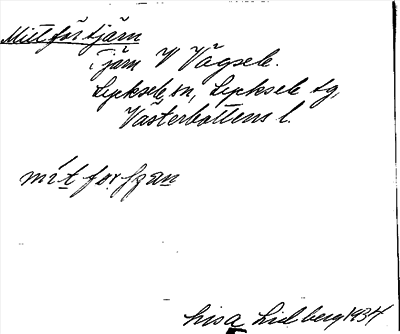 Mittförtjärn
tjärn V Vägsele.
Lycksele sn, Lycksele tg,
Västerbottens l.
mit for
Lisa Lidberg 1934